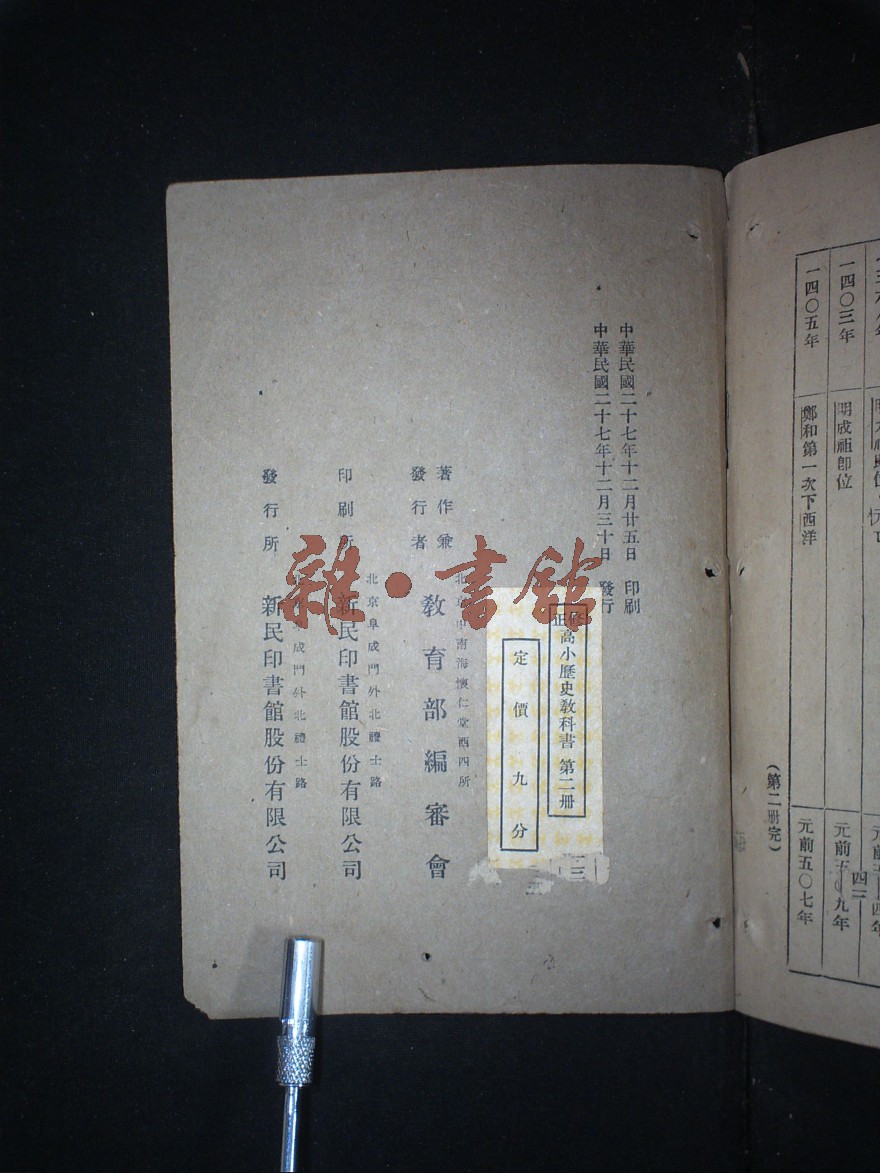 一四〇三年
明成祖卽位
元前五〇九年
一四〇五年
鄭和第一次下西洋
元前五〇七年
四二
(第二册完)
中華民國二十七年十二月廿五日 印刷
中華民國二十七年十二月三十日 發行
修正高小歷史教科書 第二册
定價九分
著作兼
發行者
北京中南海懷仁堂西四所
教育部編審會
北京阜成門外北禮士路
印刷所 新民印書館股份有限公司
成門外北禮士路
發行所 新民印書館股份有限公司
雜·書館